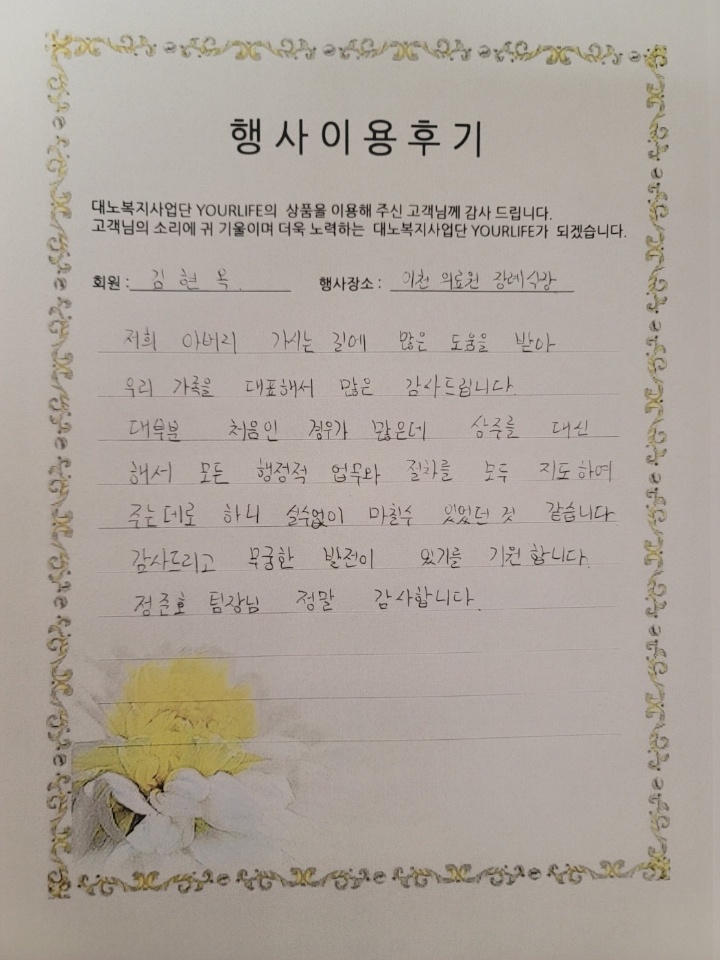 행사이용후기
대노복지사업단 YOURLIFE의 상품을 이용해 주신 고객님께 감사 드립니다.
고객님의 소리에 귀 기울이며 더욱 노력하는 대노복지사업단 YOURLIFE가 되겠습니다.
회원 : 김현옥. 행사장소 : 이천 의료원 장례식장
저희 아버리 가시는 길에 많은 도움을 받아
우리 가족을 대표해서 많은 감사드립니다.
대부분 처음인 경우가 많은데 상주를 대신
해서 모든 행정적 업무와 절차를 모두 지도하여
주는데로 하니 실수없이 마칠수 있었던 것 같습니다
감사드리고 무궁한 발전이 있기를 기원합니다.
정준호 팀장님 정말 감사합니다.